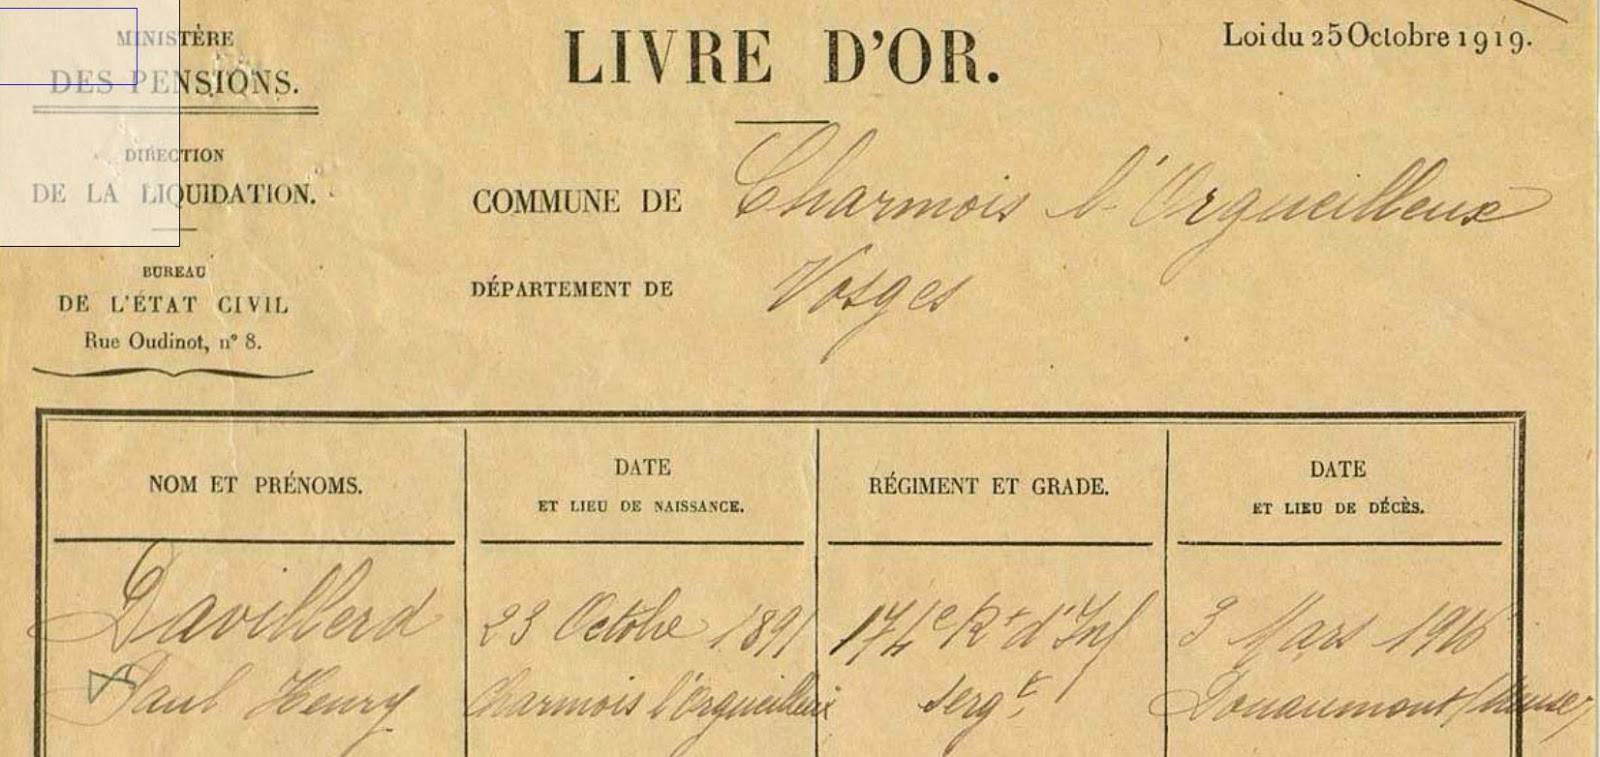 MINISTÈRE
DES PENSIONS.
DIRECTION
DE LA LIQUIDATION.
BUREAU
DE L'ÉTAT CIVIL
Rue Oudinot, n° 8.
LIVRE D'OR.
Loi du 25 Octobre 1919.
COMMUNE DE Charmois l'Orgueilleux
DÉPARTEMENT DE Vosges
NOM ET PRÉNOMS.
DATE
ET LIEU DE NAISSANCE.
RÉGIMENT ET GRADE.
DATE
ET LIEU DE DÉCÈS.
Davillerd
Paul Henry
23 Octobre 1891
Charmois l'Orgueilleux
174e Rt d'Inf
Sergt
3 Mars 1916
Douaumont (Meuse)